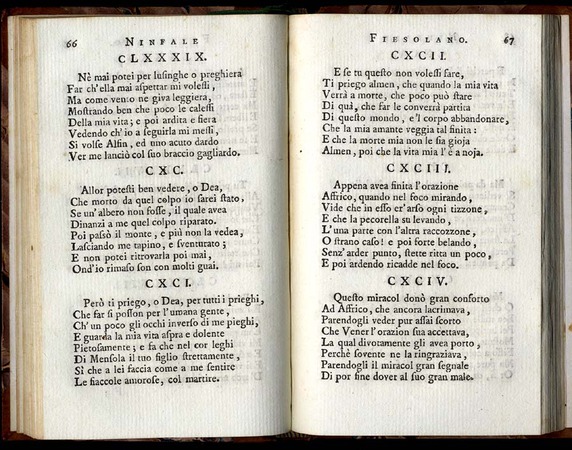 66 NINFALE
CLXXXIX.
Nè mai potei per lusinghe o preghiera
Far ch'ella mai aspettar mi volessi,
Ma come vento ne giva leggiera,
Mostrando ben che poco le calessi
Della mia vita; e poi ardita e fiera
Vedendo ch'io a seguirla mi messi,
Si volse Alfin, ed uno acuto dardo
Ver me lanciò col suo braccio gagliardo.
CXC.
Allor potesti ben vedere, o Dea,
Che morto da quel colpo io sarei stato,
Se un'albero non fosse, il quale avea
Dinanzi a me quel colpo riparato.
Poi passò il monte, e più non la vedea,
Lasciando me tapino, e sventurato;
E non potei ritrovarla poi mai,
Ond'io rimaso son con molti guai.
CXCI.
Però ti priego, o Dea, per tutti i prieghi,
Che far si posson per l'umana gente,
Ch'un poco gli occhi inverso di me pieghi,
E guarda la mia vita aspra e dolente
Pietosamente; e fa che nel cor leghi
Di Mensola il tuo figlio strettamente,
Sì che a lei faccia come a me sentire
Le fiaccole amorose, col martire.
FIESOLANO. 67
CXCII.
E se tu questo non volessi fare,
Ti priego almen, che quando la mia vita
Verrà a morte, che poco può stare
Di quà, che far le converrà partita
Di questo mondo, e'l corpo abbandonare,
Che la mia amante veggia tal finita:
E che la morte mia non le sia gioja
Almen, poi che la vita mia l'è a noja.
CXCIII.
Appena avea finita l'orazione
Affrico, quando nel foco mirando,
Vide che in esso er'arso ogni tizzone,
E che la pecorella su levando,
L'una parte con l'altra raccozzone,
O strano caso! e poi forte belando,
Senz'arder punto, stette ritta un poco,
E poi ardendo ricadde nel foco.
CXCIV.
Questo miracol donò gran conforto
Ad Affrico, che ancora lacrimava,
Parendogli veder pur assai scorto
Che Vener l'orazion sua accettava,
La qual divotamente gli avea porto,
Perchè sovente ne la ringraziava,
Parendogli il miracol gran segnale
Di por fine dover al suo gran male.